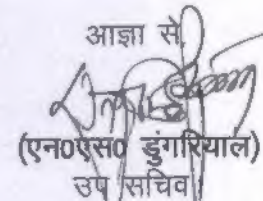 आज्ञा से
(एन0एस0 डुंगरियाल)
उप सचिव